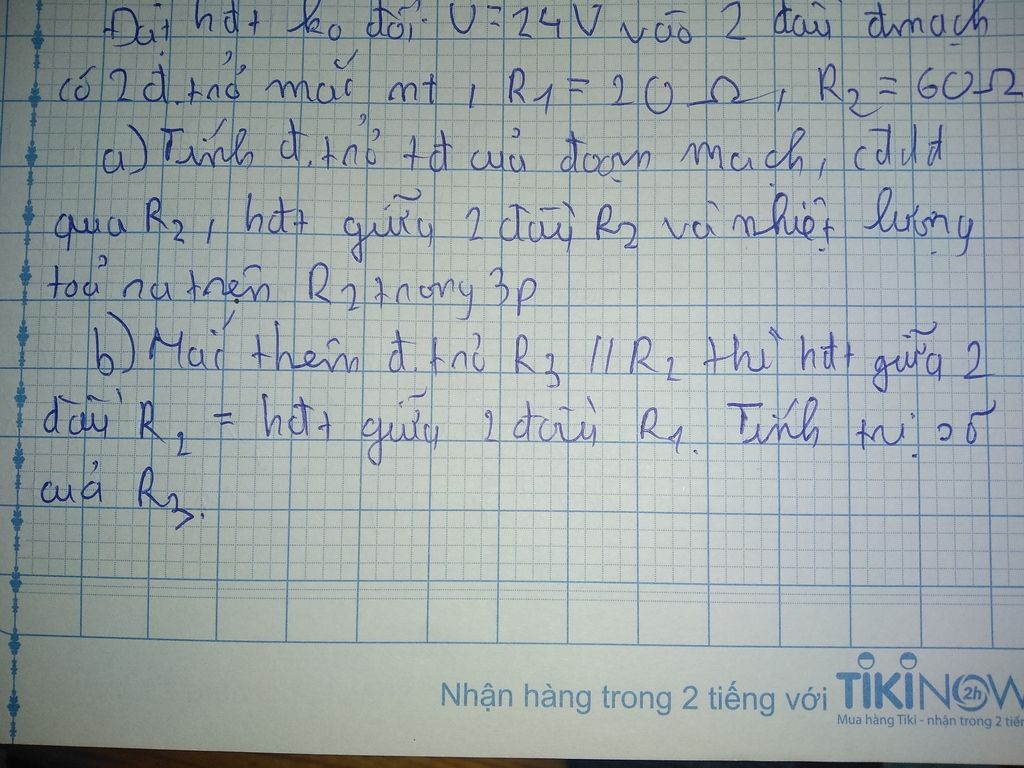 Đặt hđt ko đổi U = 24V vào 2 đầu đmạch
có 2 đ.trở mắc nt, R1 = 20Ω, R2 = 60Ω
a) Tính đ.trở tđ của đoạn mạch, cđdđ
qua R2, hđt giữa 2 đầu R2 và nhiệt lượng
toả ra trên R2 trong 3p
b) Mắc thêm đ.trở R3 // R2 thì hđt giữa 2
đầu R2 = hđt giữa 2 đầu R1. Tính trị số
của R3.
Nhận hàng trong 2 tiếng với TIKINOW 2h
Mua hàng Tiki - nhận trong 2 tiến